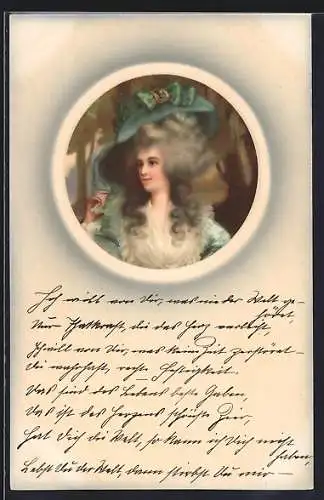 Ich will von Dir, was nie der Welt ge-
höret,
Nur Thatkraft, die das Herz
Ich will von Dir, was keine Zeit zerstöret –
die wahrhaft, rechte
Das sind des Lebens beste Gaben,
Das ist des Herzens schönste Zier,
Hat Dich die Welt, so kann ich Dich nicht
haben,
Lebst Du der Welt, dann stirbst Du mir –